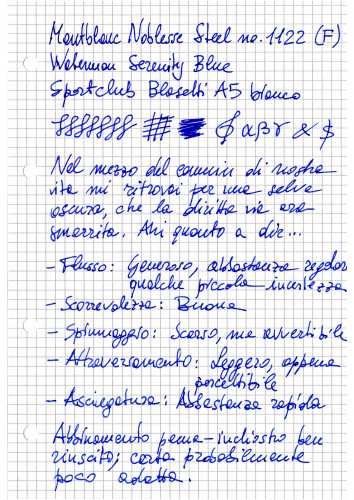 Montblanc Noblesse Steel no. 1122 (F)
Waterman Serenity Blue
Sportclub Blasetti A5 bianco
αβγ &
Nel mezzo del cammin di nostra
vita mi ritrovai per una selva
oscura, che la diritta via era
smarrita. Ahi quanto a dir...
- Flusso: Generoso, abbastanza regolare
qualche piccola incertezza
- Scorrevolezza: Buona
- Spiumaggio: Scarso, ma avvertibile
- Attraversamento: Leggero, appena
percettibile
- Asciugatura: Abbastanza rapida
Abbinamento penna-inchiostro ben
riuscito; carta probabilmente
poco adatta.